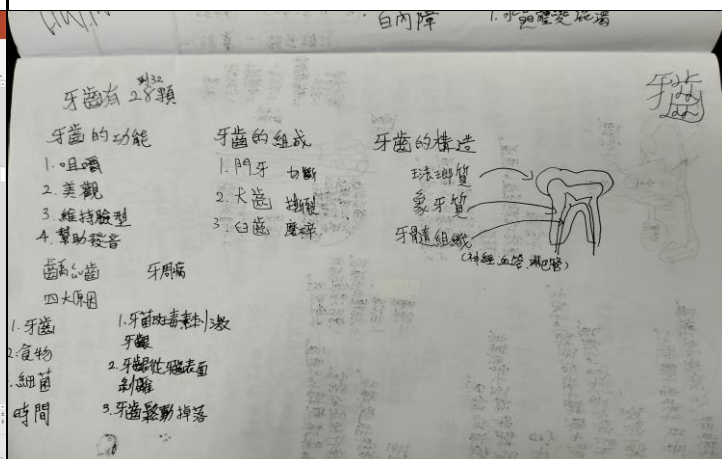 白內障
1. 水晶體變混濁
牙齒
牙齒有28顆
到32
牙齒的功能
1. 咀嚼
2. 美觀
3. 維持臉型
4. 幫助發音
牙齒的組成
1. 門牙 切斷
2. 犬齒 撕裂
3. 臼齒 磨碎
牙齒的構造
琺瑯質
象牙質
牙髓組織
(神經、血管、淋巴管)
齲齒
四大原因
1. 牙齒
2. 食物
細菌
時間
牙周病
1. 牙菌斑毒素刺激
牙齦
2. 牙齦從牙齒表面
剝離
3. 牙齒鬆動掉落